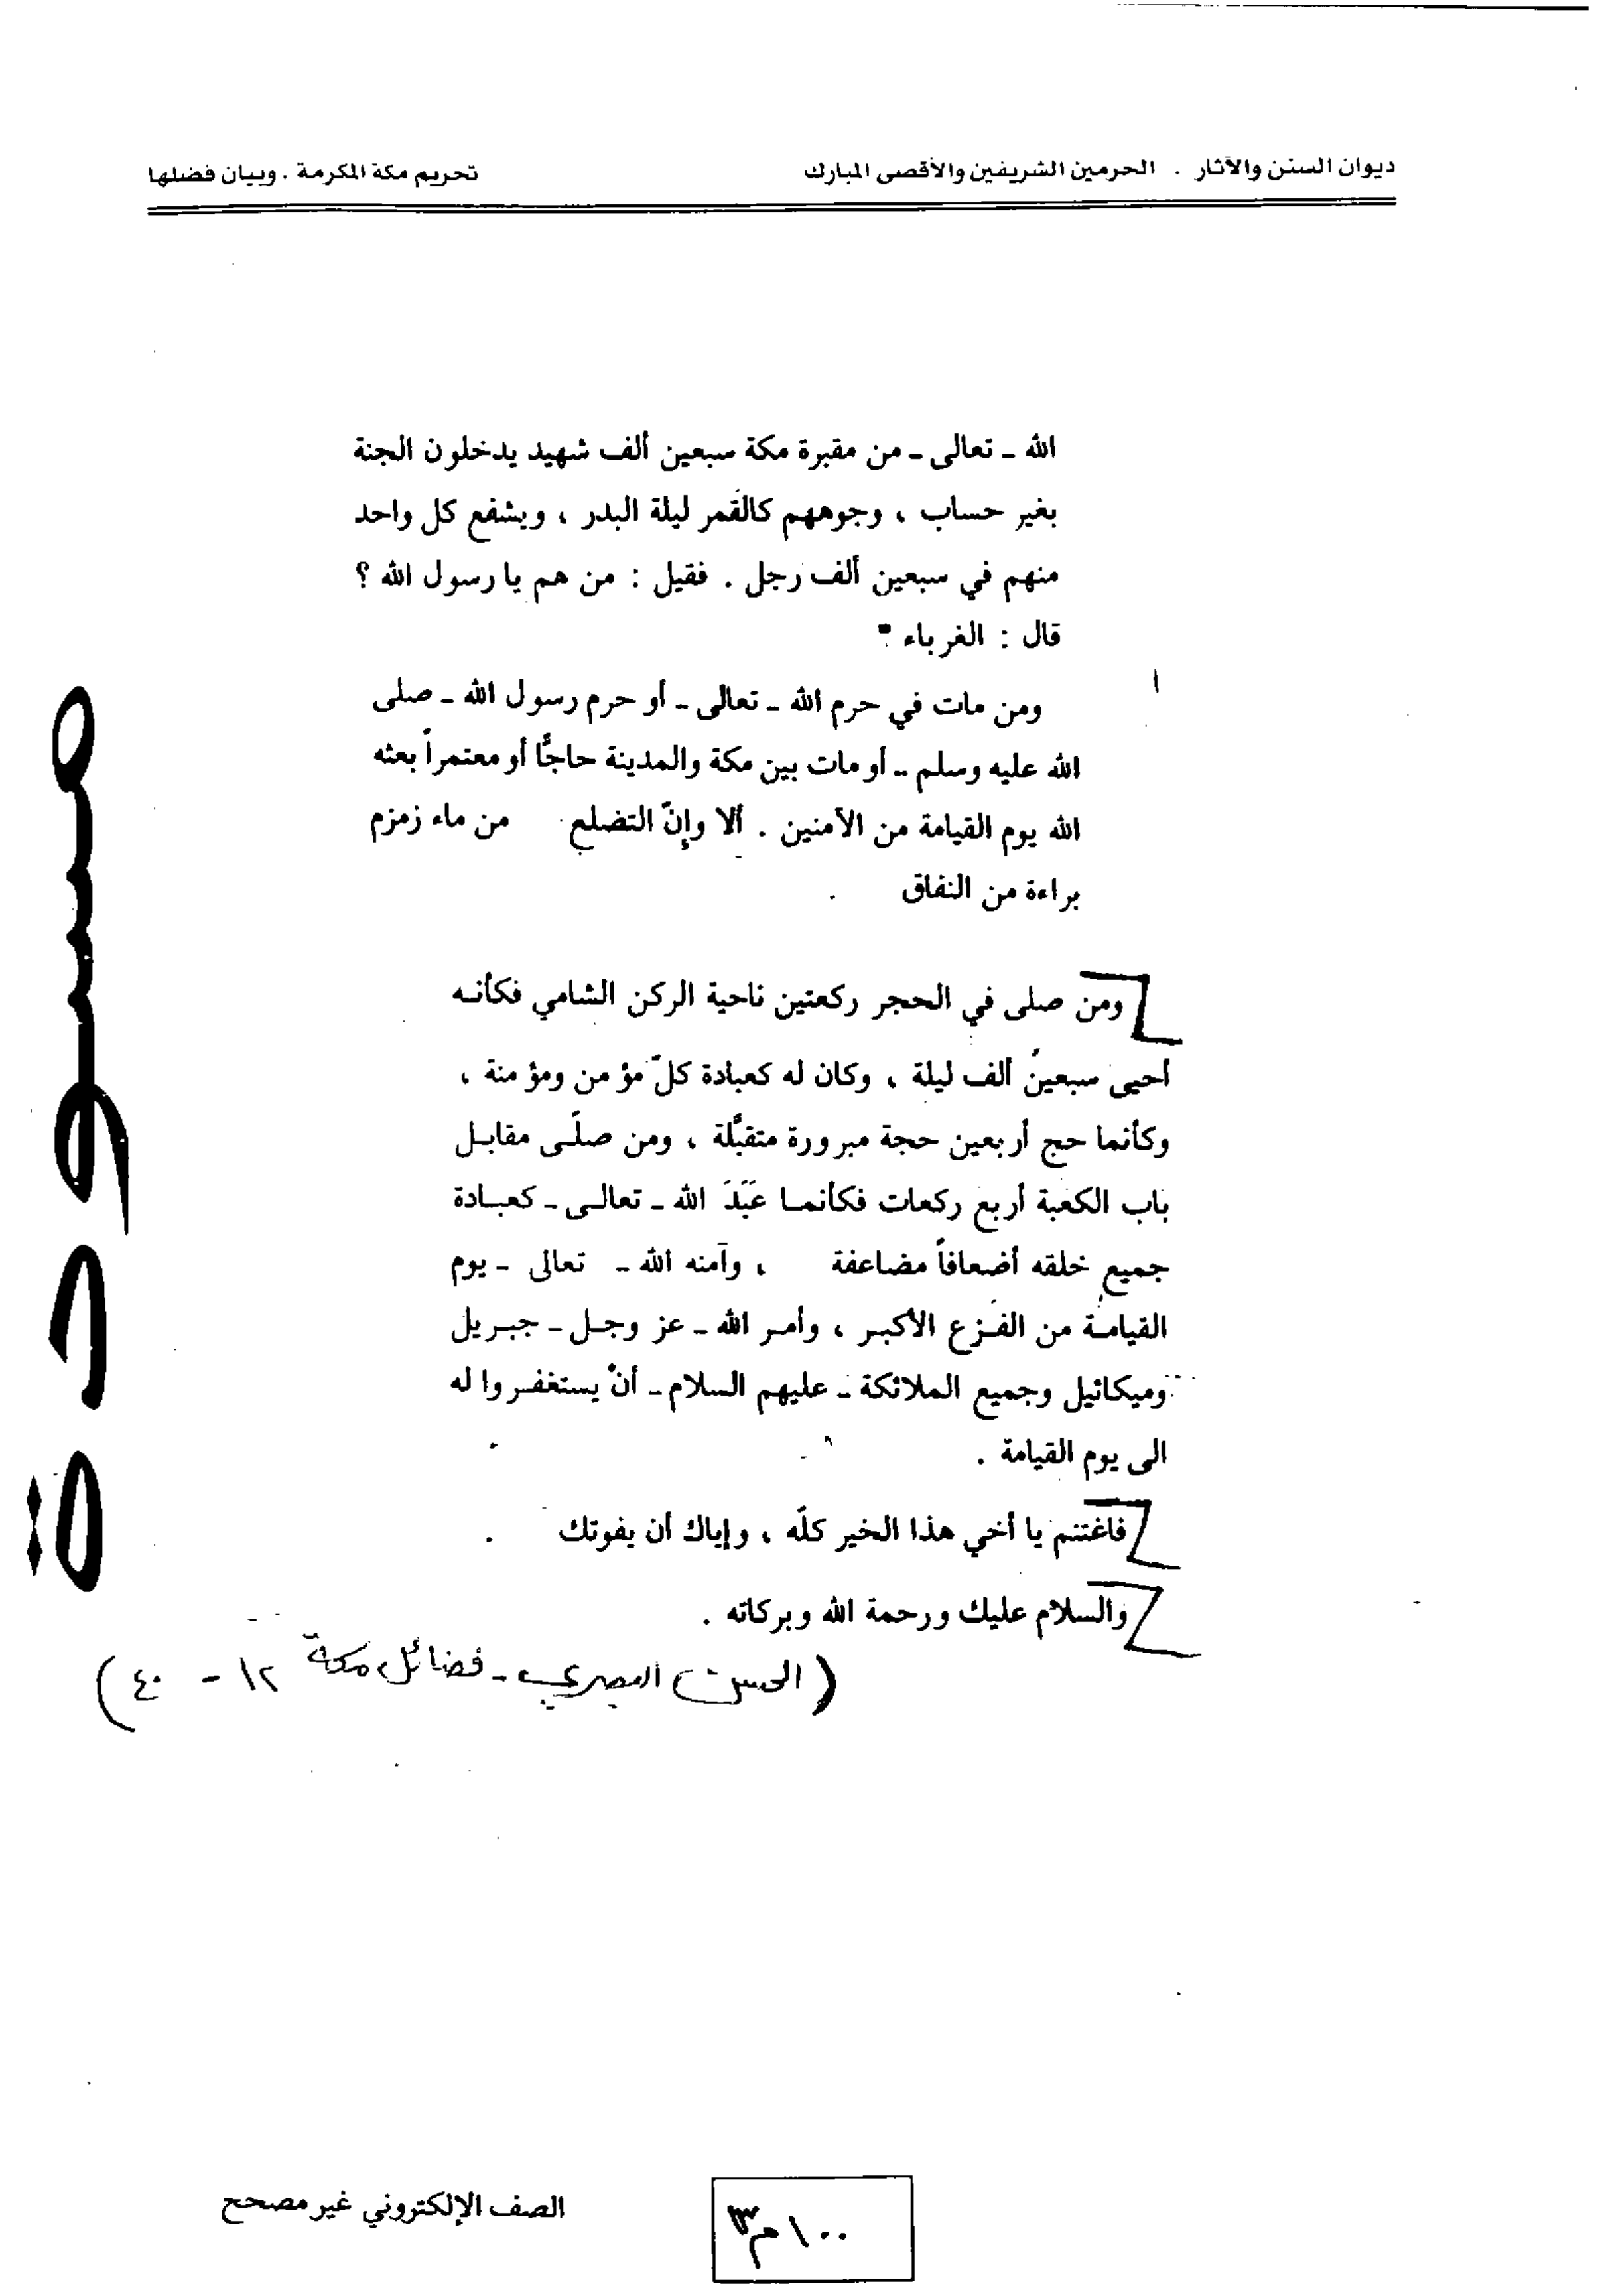 ديوان السنن والآثار . الحرمين الشريفين والأقصى المبارك
تحريم مكة المكرمة . وبيان فضلها
الله ـ تعالى ـ من مقبرة مكة سبعين ألف شهيد يدخلون الجنة
بغير حساب ، وجوههم كالقمر ليلة البدر ، ويشفع كل واحد
منهم في سبعين ألف رجل . فقيل : من هم يا رسول الله ؟
قال : الغرباء "
ومن مات في حرم الله ـ تعالى ـ أو حرم رسول الله ـ صلى
الله عليه وسلم ـ أو مات بين مكة والمدينة حاجًّا أو معتمراً بعثه
الله يوم القيامة من الآمنين . ألا وإنّ التضلع من ماء زمزم
براءة من النفاق .
ومن صلى في الحجر ركعتين ناحية الركن الشامي فكأنه
أحيى سبعين ألف ليلة ، وكان له كعبادة كلّ مؤمن ومؤمنة ،
وكأنما حج أربعين حجة مبرورة متقبَّلة ، ومن صلّى مقابل
باب الكعبة أربع ركعات فكأنما عَبَدَ الله ـ تعالى ـ كعبادة
جميع خلقه أضعافاً مضاعفة ، وآمنه الله ـ تعالى ـ يوم
القيامة من الفزع الأكبر ، وأمر الله ـ عز وجل ـ جبريل
وميكائيل وجميع الملائكة ـ عليهم السلام ـ أنْ يستغفروا له
الى يوم القيامة .
فاغتنم يا أخي هذا الخير كلّه ، وإياك أن يفوتك .
والسلام عليك ورحمة الله وبركاته .
(الحسن البصري - فضائل مكة ١٢ - ٤٠)
مسودة
الصف الإلكتروني غير مصحح
١٠٠م٣